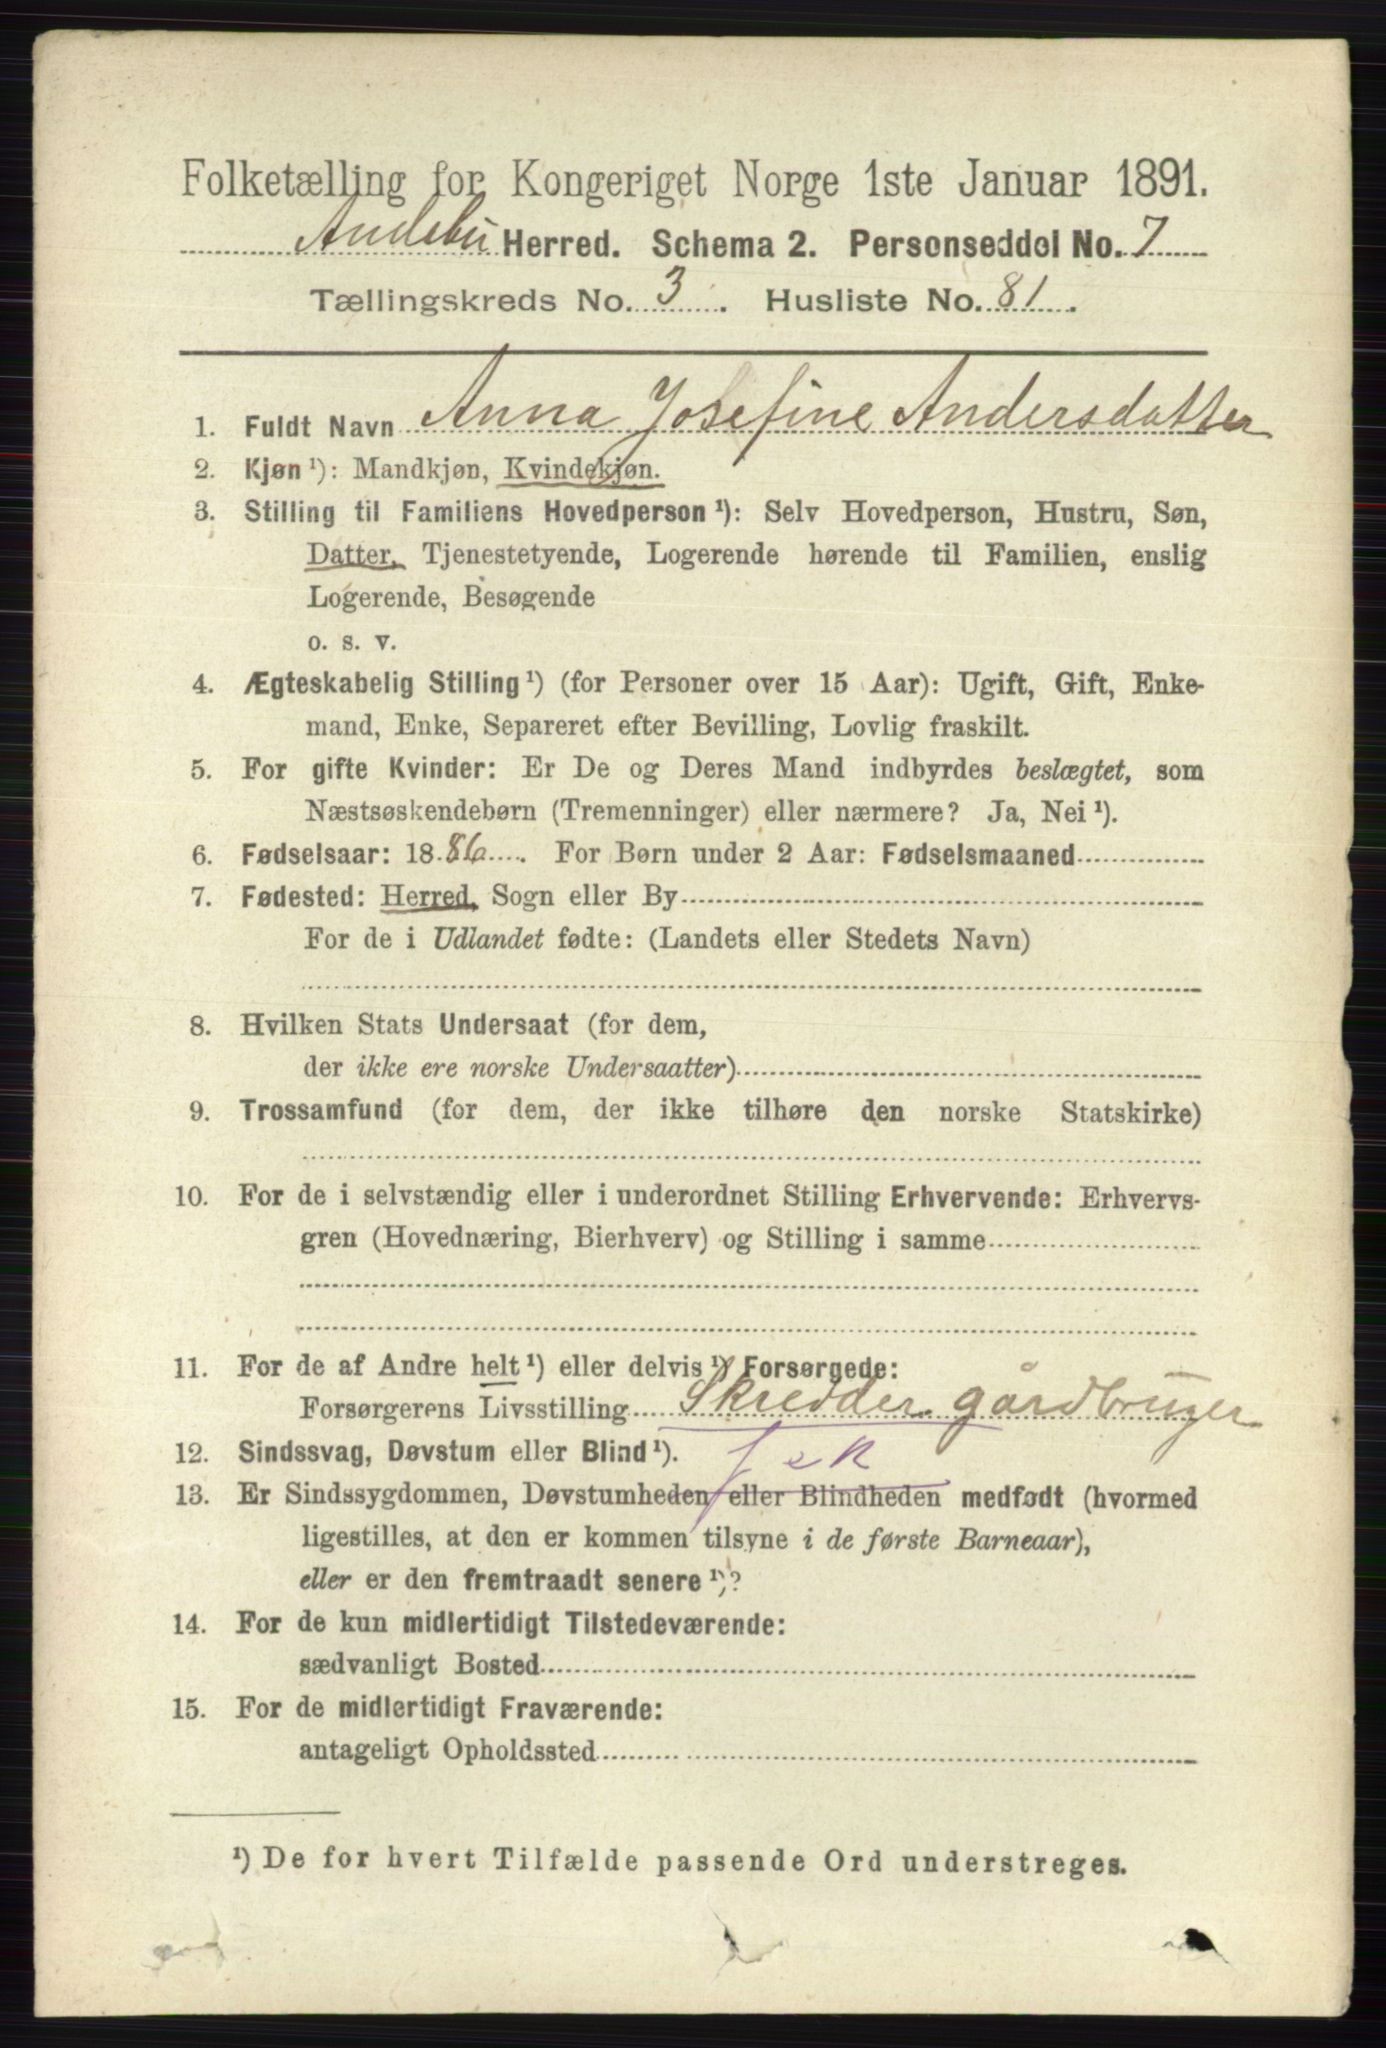 Folketælling for Kongeriget Norge 1ste Januar 1891.
Andebu Herred. Schema 2. Personseddel No. 7
Tællingskreds No. 3. Husliste No. 81.
1. Fuldt Navn Anna Josefine Andersdatter
2. Kjøn ¹): Mandkjøn, Kvindekjøn.
3. Stilling til Familiens Hovedperson ¹): Selv Hovedperson, Hustru, Søn,
Datter, Tjenestetyende, Logerende hørende til Familien, enslig
Logerende, Besøgende
o. s. v.
4. Ægteskabelig Stilling ¹) (for Personer over 15 Aar): Ugift, Gift, Enke-
mand, Enke, Separeret efter Bevilling, Lovlig fraskilt.
5. For gifte Kvinder: Er De og Deres Mand indbyrdes beslægtet, som
Næstsøskendebørn (Tremenninger) eller nærmere? Ja, Nei ¹).
6. Fødselsaar: 1886. For Børn under 2 Aar: Fødselsmaaned
7. Fødested: Herred, Sogn eller By
For de i Udlandet fødte: (Landets eller Stedets Navn)
8. Hvilken Stats Undersaat (for dem,
der ikke ere norske Undersaatter)
9. Trossamfund (for dem, der ikke tilhøre den norske Statskirke)
10. For de i selvstændig eller i underordnet Stilling Erhvervende: Erhvervs-
gren (Hovednæring, Bierhverv) og Stilling i samme
11. For de af Andre helt ¹) eller delvis ¹) Forsørgede:
Forsørgerens Livsstilling Skredder gårdbruger
12. Sindssvag, Døvstum eller Blind ¹).
13. Er Sindssygdommen, Døvstumheden eller Blindheden medfødt (hvormed
ligestilles, at den er kommen tilsyne i de første Barneaar),
eller er den fremtraadt senere ¹)?
14. For de kun midlertidigt Tilstedeværende:
sædvanligt Bosted
15. For de midlertidigt Fraværende:
antageligt Opholdssted
¹) De for hvert Tilfælde passende Ord understreges.